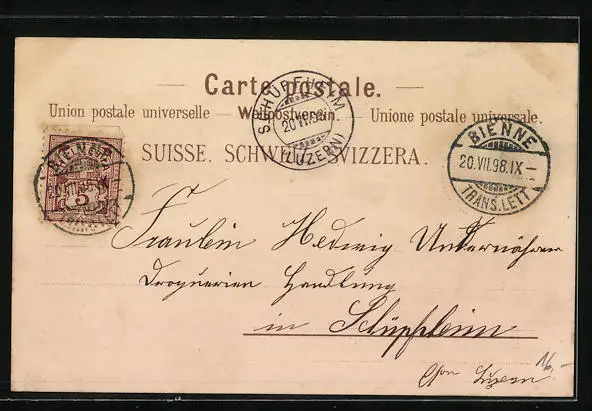 Carte postale.
Union postale universelle – Weltpostverein – Unione postale universale.
SUISSE. SCHWEIZ. SVIZZERA.
SCHÜPFHEIM
20.VII.98
(LUZERN)
BIENNE
20.VII.98.IX–
TRANS.LETT.
BIENNE
5
Fräulein Hedwig Unternährer
Droguerien Handlung
in Schüpfheim
Ct. Luzern
16.-